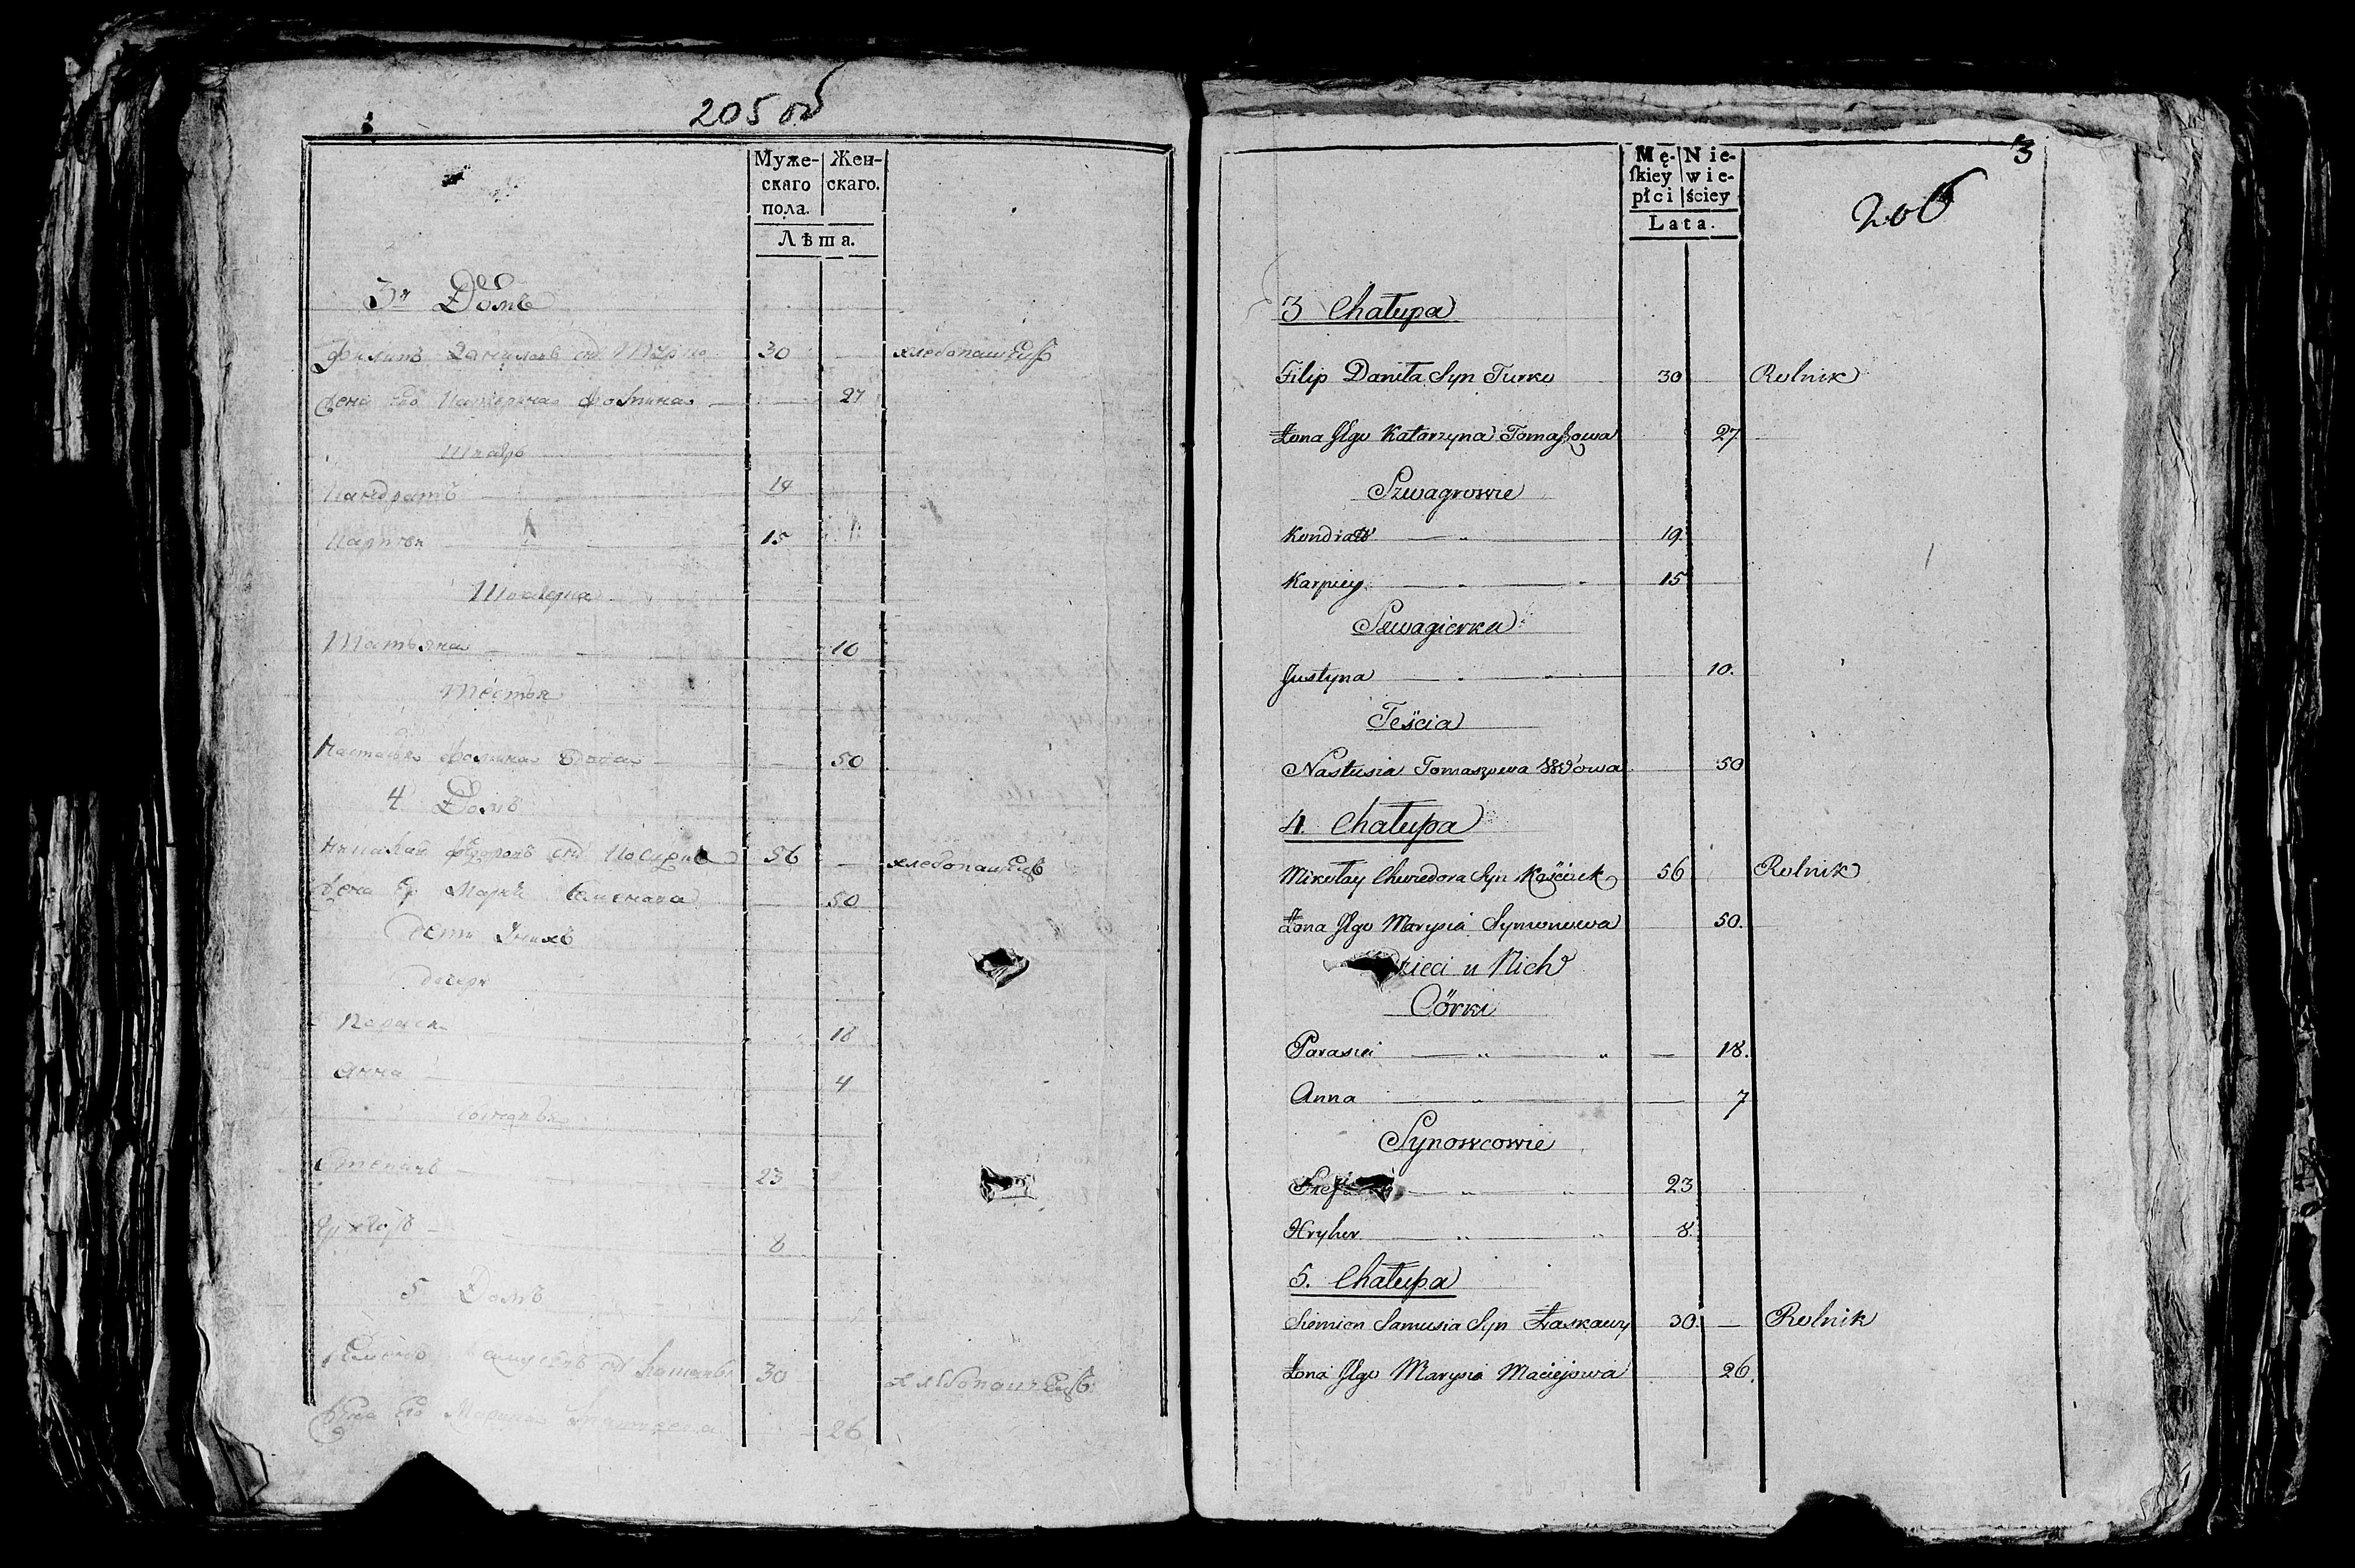 205 об
Муже-
скаго
пола.
Жен-
скаго.
Лѣта.
3й Домъ
Филипъ Даниловъ сынъ Турко 30 — хлебопашецъ
Жена его Катерина Фомина — 27
Швагръ
Кандратъ 19
Карпей 15
Швагерка
Татьяна 10
Тестья
Настасья Фомина вдова 50
4 Домъ
Николай сынъ 56 — хлебопашецъ
Жена его Семенова 50
дети у нихъ
дочери
18
Анна 4
Степанъ 23
8
5 Домъ
сынъ 30 хлебопашецъ
Жена его Марина 26
3
206
Mę-
skiey
płci
Nie-
wie-
ściey
Lata.
3 Chałupa
Filip Daniła Syn Turko 30 Rolnik
Żona Jego Katarzyna Tomaszowa 27
Szwagrowie
Kondrat 19
Karpiey 15
Szwagierka
Justyna 10.
Teścia
Nastusia Tomaszowa Wdowa 50
4. Chałupa
Mikołay Chwiedora Syn Kaściuk 56 Rolnik
Żona Jego Marysia Symonowa 50.
Dzieci u Nich
Córki
Parasia — „ — „ — 18.
Anna — „ — 7
Synowcowie
— „ — „ 23
Hryhor — „ — „ 8.
5. Chałupa
Siemion Samusia Syn Łaskawy 30. — Rolnik
Żona Jego Marysia Maciejowa 26.